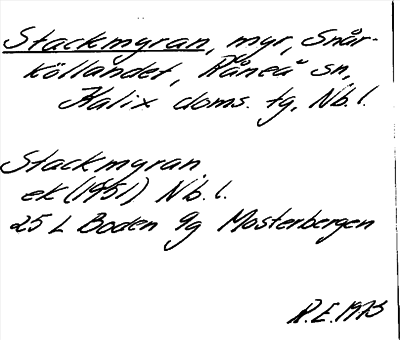 Stackmyran, myr, Snår-
köllandet, Råneå sn,
Kalix doms. tg, Nb.l.
Stackmyran
ek (1951) Nb.l.
25 L Boden 9g Mosterbergen
R.E. 1973